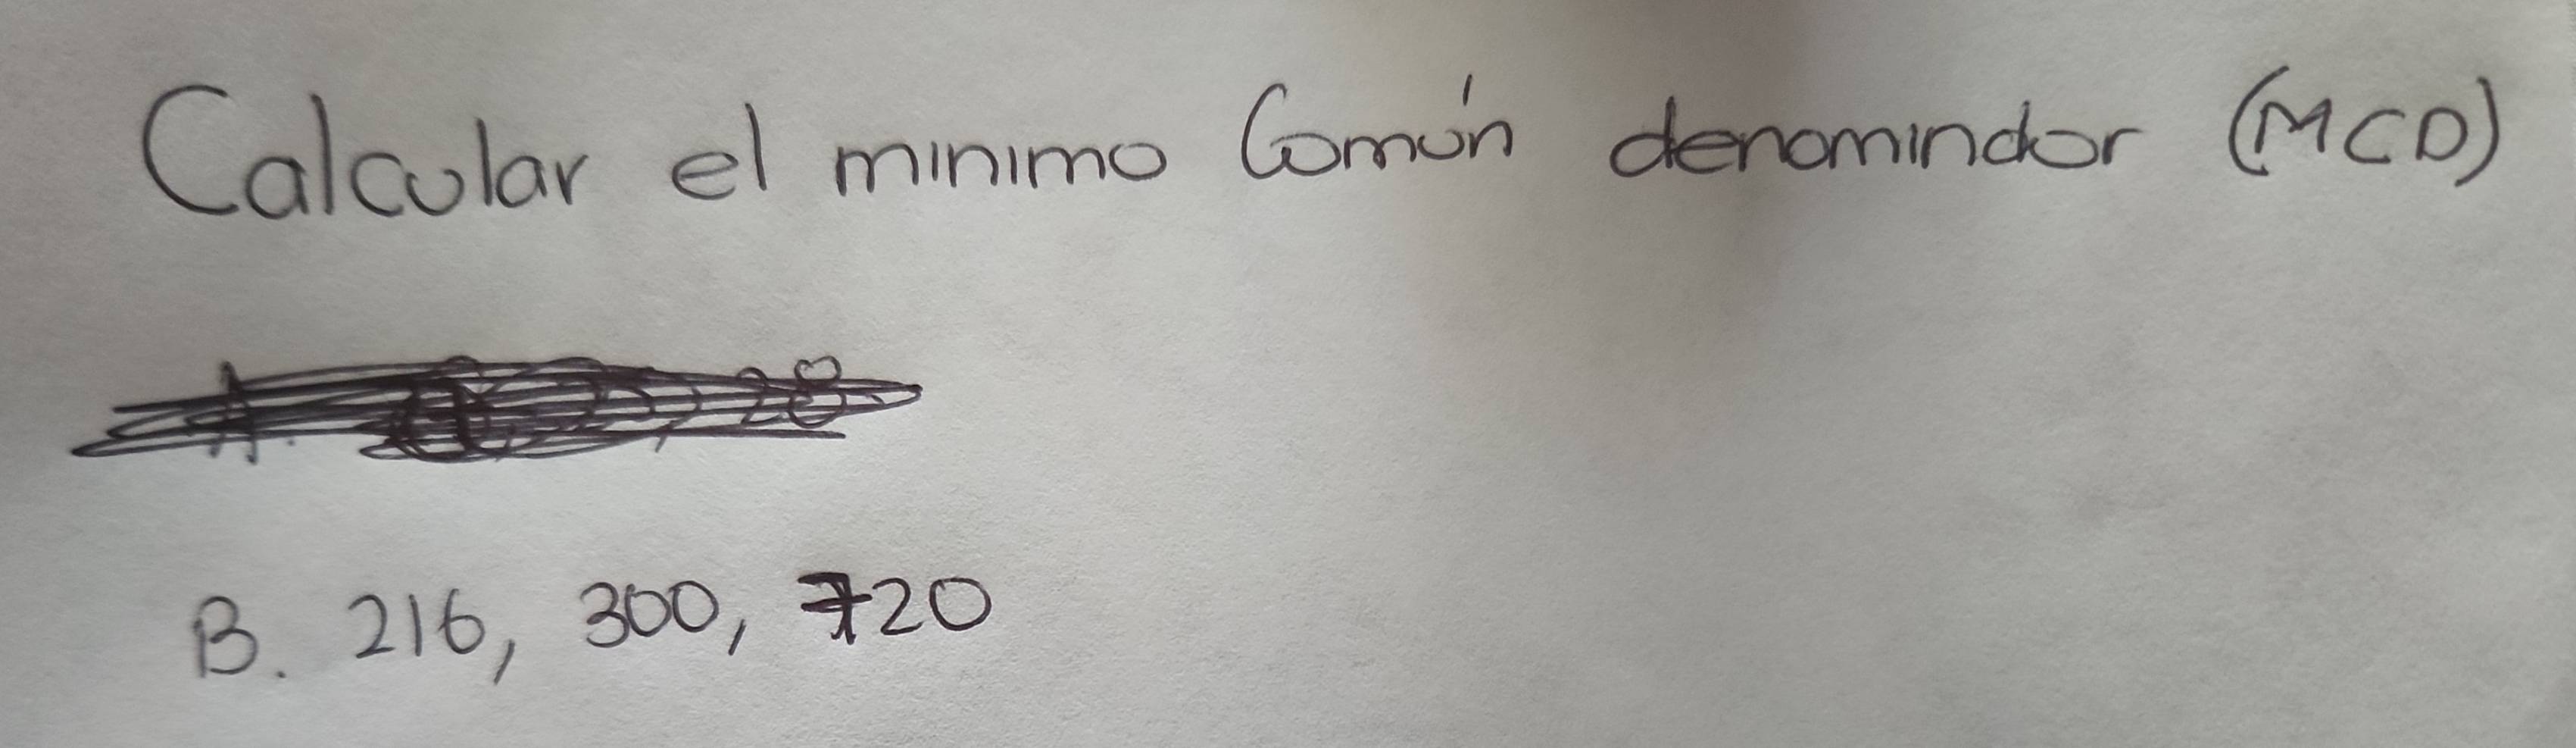 Calcular el minimo Común denomindor (MCD)
B. 216, 300, 720